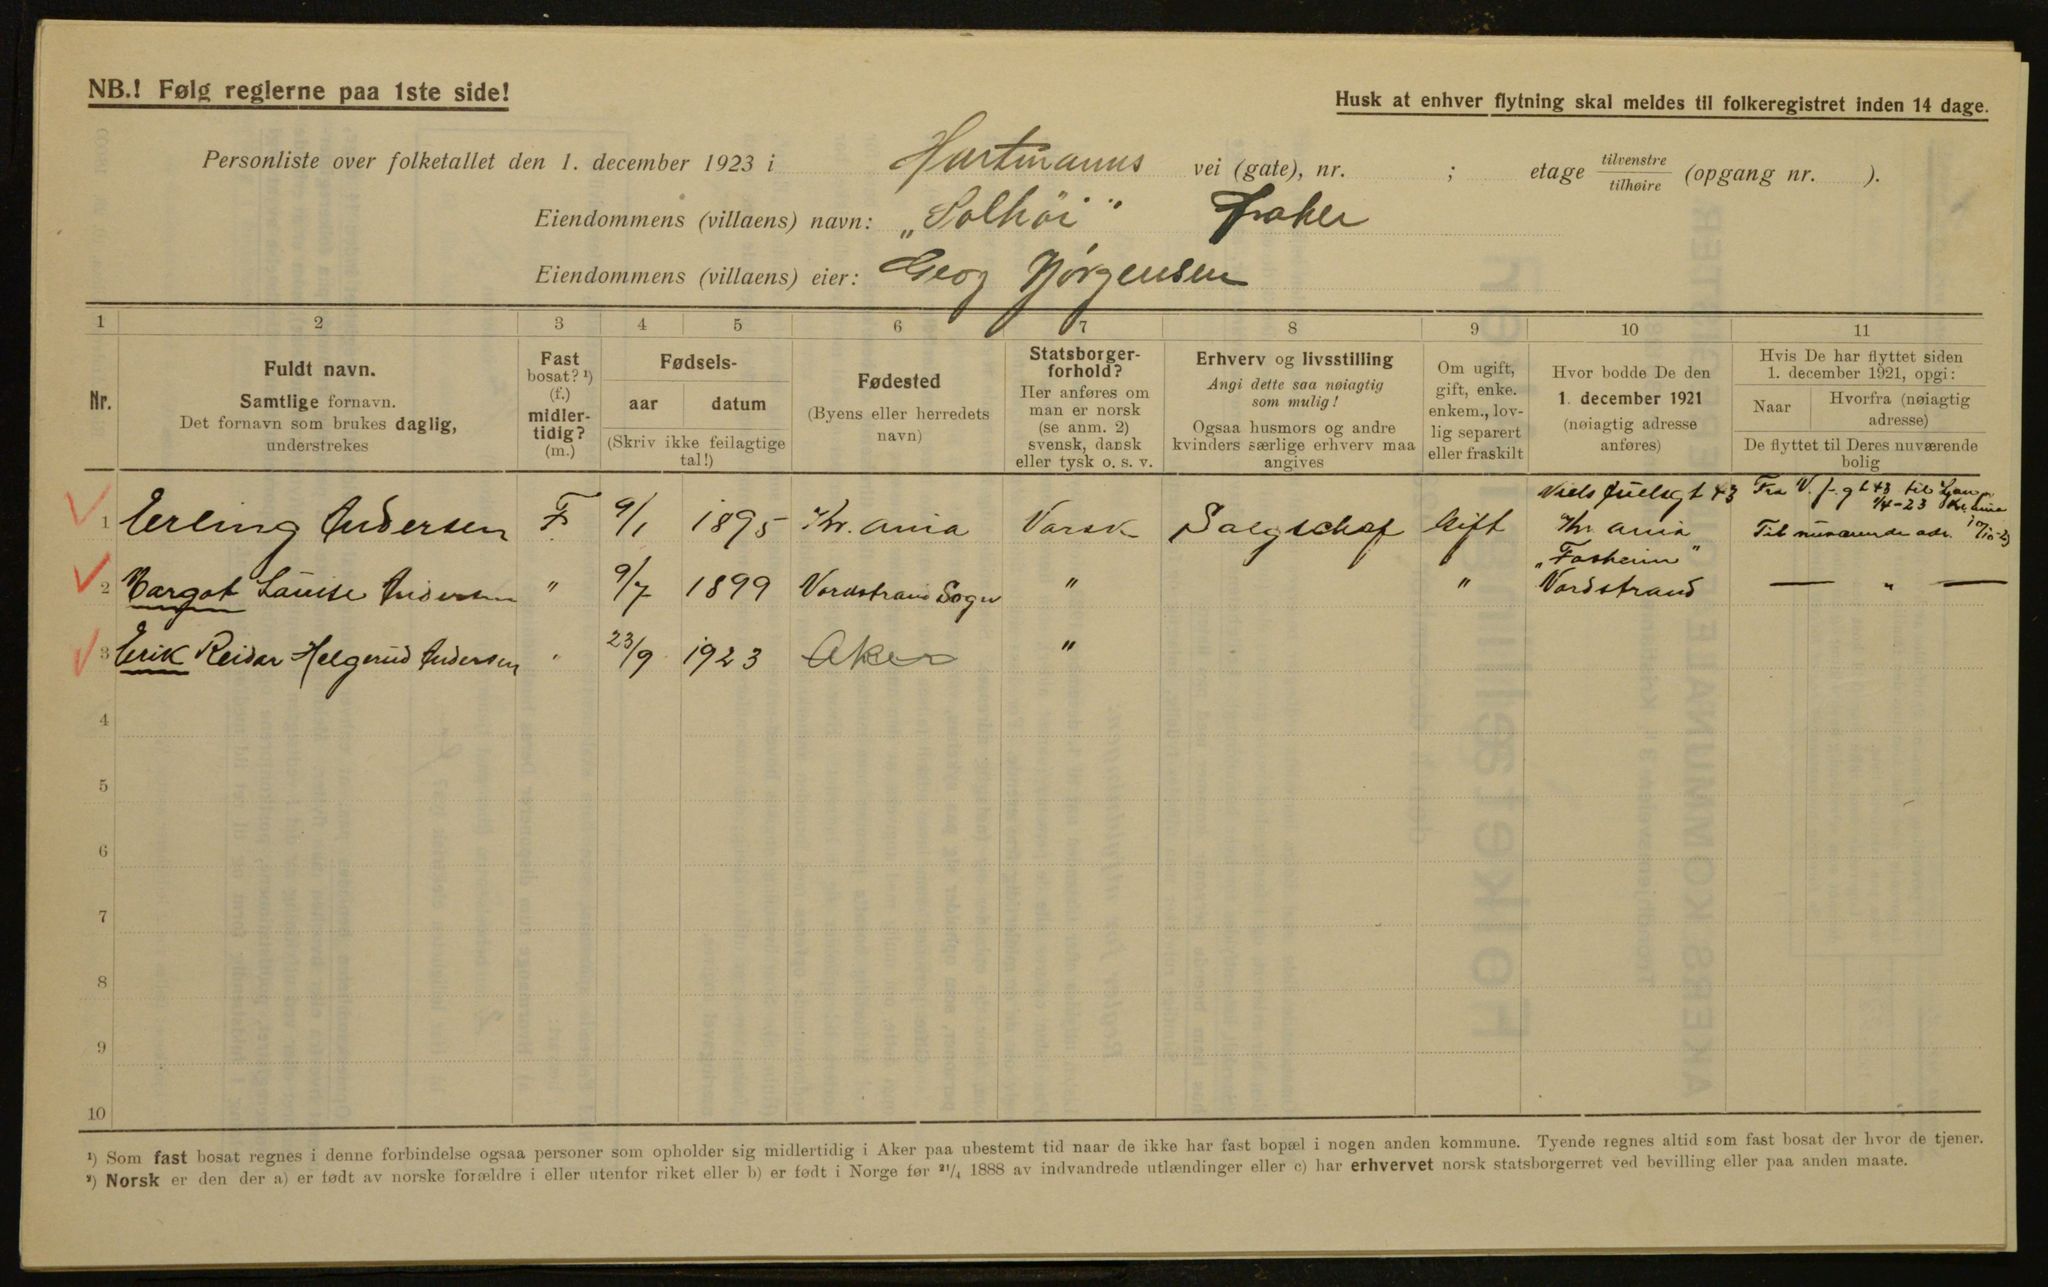 NB.! Følg reglerne paa 1ste side!
Husk at enhver flytning skal meldes til folkeregistret inden 14 dage.
Personliste over folketallet den 1. december 1923 i Hartmanns vei (gate), nr. ; etage tilvenstre / tilhøire (opgang nr. ).
Eiendommens (villaens) navn: „Solhöi"
Eiendommens (villaens) eier: Georg Jørgensen
1 2 3 4 5 6 7 8 9 10 11
Nr.
Fuldt navn.
Samtlige fornavn.
Det fornavn som brukes daglig,
understrekes
Fast
bosat? ¹)
(f.)
midler-
tidig?
(m.)
Fødsels-
aar datum
(Skriv ikke feilagtige
tal!)
Fødested
(Byens eller herredets
navn)
Statsborger-
forhold?
Her anføres om
man er norsk
(se anm. 2)
svensk, dansk
eller tysk o. s. v.
Erhverv og livsstilling
Angi dette saa nøiagtig
som mulig!
Ogsaa husmors og andre
kvinders særlige erhverv maa
angives
Om ugift,
gift, enke.
enkem., lov-
lig separert
eller fraskilt
Hvor bodde De den
1. december 1921
(nøiagtig adresse
anføres)
Hvis De har flyttet siden
1. december 1921, opgi:
Naar
Hvorfra (nøiagtig
adresse)
De flyttet til Deres nuværende
bolig
1 Erling Andersen F. 9/1 1895 Kr. ania Norsk Salgschef Gift Niels Juelsgt 43
Kr ania
Fra N. J. gt 43 til
1/4-23
Til nuværende adr.
2 Margot Louise Andersen " 9/7 1899 Nordstrand Sogn " " „Fosheim"
Nordstrand — " —
3 Erik Reidar Helgerud Andersen " 23/9 1923 Aker "
4
5
6
7
8
9
10
¹) Som fast bosat regnes i denne forbindelse ogsaa personer som opholder sig midlertidig i Aker paa ubestemt tid naar de ikke har fast bopæl i nogen anden kommune. Tyende regnes altid som fast bosat der hvor de tjener.
²) Norsk er den der a) er født av norske forældre i eller utenfor riket eller b) er født i Norge før ²¹/₄ 1888 av indvandrede utlændinger eller c) har erhvervet norsk statsborgerret ved bevilling eller paa anden maate.